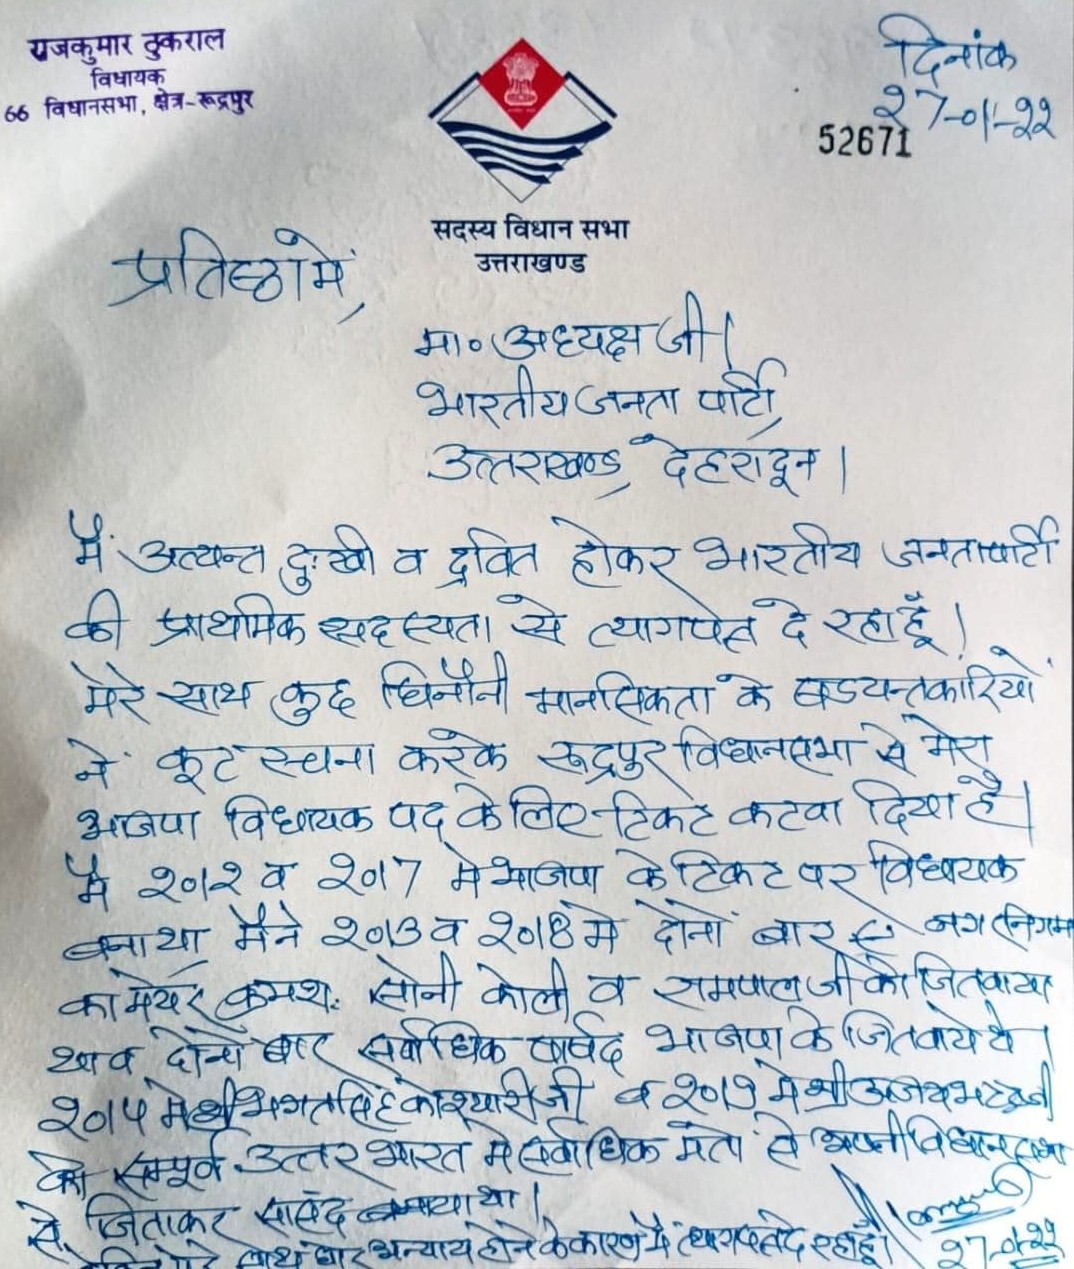 राजकुमार ठुकराल
विधायक
66 विधानसभा, क्षेत्र-रूद्रपुर
दिनांक
२7-01-२२
52671
सदस्य विधान सभा
उत्तराखण्ड
प्रतिष्ठा में,
मा० अध्यक्ष जी।
भारतीय जनता पार्टी,
उत्तराखण्ड, देहरादून।
मैं अत्यन्त दुःखी व द्रवित होकर भारतीय जनता पार्टी
की प्राथमिक सदस्यता से त्यागपत्र दे रहा हूँ।
मेरे साथ कुछ घिनौनी मानसिकता के षडयन्त्रकारियों
ने कूट रचना करके रूद्रपुर विधानसभा से मेरा
भाजपा विधायक पद के लिए टिकट कटवा दिया है।
मैं २०1२ व २०17 मे भाजपा के टिकट पर विधायक
बना था, मैने २०13 व २०18 मे दोनों बार नगर निगम
का मेयर क्रमशः सोनी कोली व रामपाल जी को जितवाया
था व दोनों बार सर्वाधिक पार्षद भाजपा के जितवाये थे।
२०1५ मे श्री भगत सिंह कोश्यारी जी व २०1९ मे श्री अजय भट्ट जी
को सम्पूर्ण उत्तर भारत मे सर्वाधिक मतों से अपनी विधानसभा
से जिताकर सांसद बनवाया था।
मेरे साथ घोर अन्याय होने के कारण मैं त्यागपत्र दे रहा हूँ।
२7-01-२२